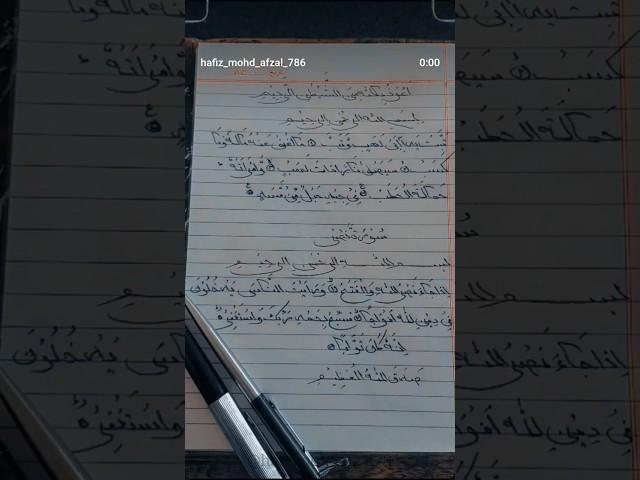 hafiz_mohd_afzal_786 0:00
اعوذ باللہ من الشیطٰن الرجیم
بسم اللہ الرحمٰن الرحیم
تَبَّتْ یَدَا اَبِیْ لَهَبٍ وَّتَبَّ مَا اَغْنٰى عَنْهُ مَالُهٗ وَمَا
كَسَبَ سَیَصْلٰى نَارًا ذَاتَ لَهَبٍ وَّامْرَاَتُهٗ
حَمَّالَةَ الْحَطَبِ فِیْ جِیْدِهَا حَبْلٌ مِّنْ مَّسَدٍ
سورة نصر
بسم اللہ الرحمٰن الرحیم
اِذَا جَآءَ نَصْرُ اللهِ وَالْفَتْحُ وَرَاَیْتَ النَّاسَ یَدْخُلُوْنَ
فِیْ دِیْنِ اللهِ اَفْوَاجًا فَسَبِّحْ بِحَمْدِ رَبِّكَ وَاسْتَغْفِرْهُ
اِنَّهٗ كَانَ تَوَّابًا
صدق اللہ العظیم